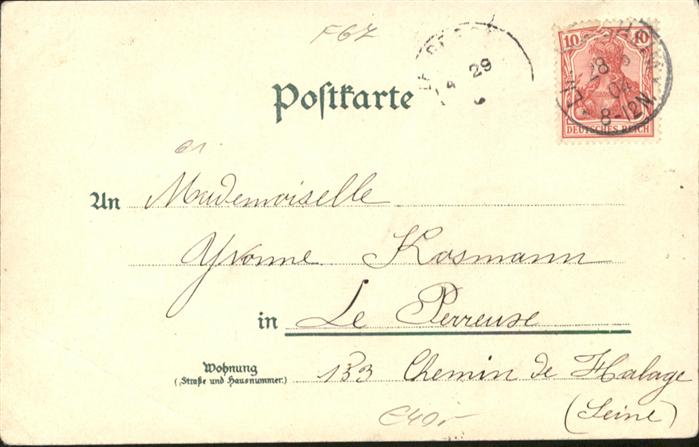 F67
29
10 10
28
04
8-12N
DEUTSCHES REICH
Postkarte
61
An Mademoiselle
Yvonne Kosmann
in Le Perreuse
Wohnung
(Straße und Hausnummer.)
133 Chemin de Halage
(Seine)
€40,-